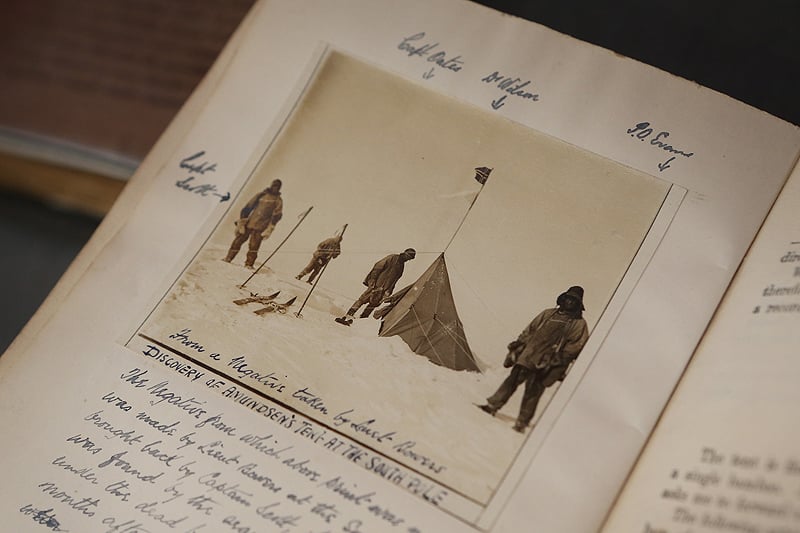 Capt Oates
Dr Wilson
P.O. Evans
Capt
Scott
From a Negative taken by Lieut Bowers
DISCOVERY OF AMUNDSEN'S TENT AT THE SOUTH POLE
The Negative from which above print was
was made by Lieut Bowers at the So
brought back by Captain Scott
was found by the sear
under the dead b
months af
dire
therefo
a recor
The tent is
a single
asks me to forward
The following